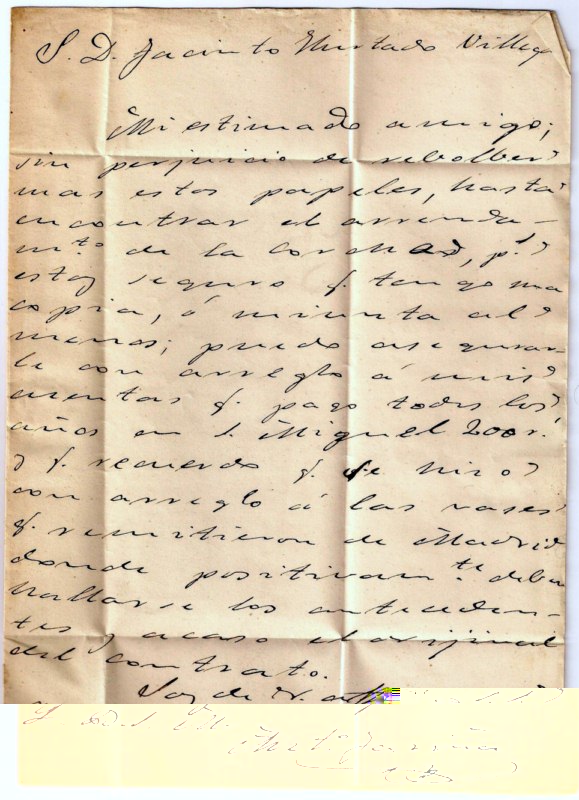 S. D. Jacinto Hurtado Villeg
Mi estimado amigo;
sin perjuicio de rebolber
mas estos papeles, hasta
encontrar el arrenda-
mto de la Cor, pr
estoy seguro q. tengo una
copia, ó minuta al
menos; puedo asegurar-
le con arreglo á mis
cuentas q. pago todos los
años en S. Miguel 200 r.
y q. recuerdo q. se hizo
con arreglo á las vases
q. remitieron de Madrid
donde positivamte deben
hallarse los anteceden-
tes y acaso el orijinal
del contrato.
Soy de V.